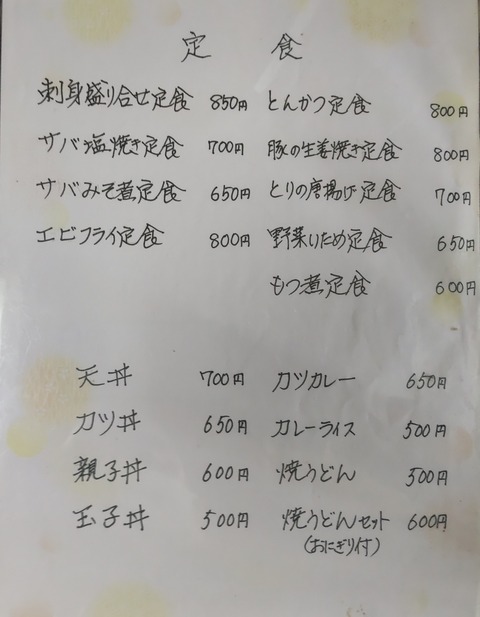 定食
刺身盛り合せ定食 850円 とんかつ定食 800円
サバ塩焼き定食 700円 豚の生姜焼き定食 800円
サバみそ煮定食 650円 とりの唐揚げ定食 700円
エビフライ定食 800円 野菜いため定食 650円
もつ煮定食 600円
天丼 700円 カツカレー 650円
カツ丼 650円 カレーライス 500円
親子丼 600円 焼うどん 500円
玉子丼 500円 焼うどんセット 600円
(おにぎり付)